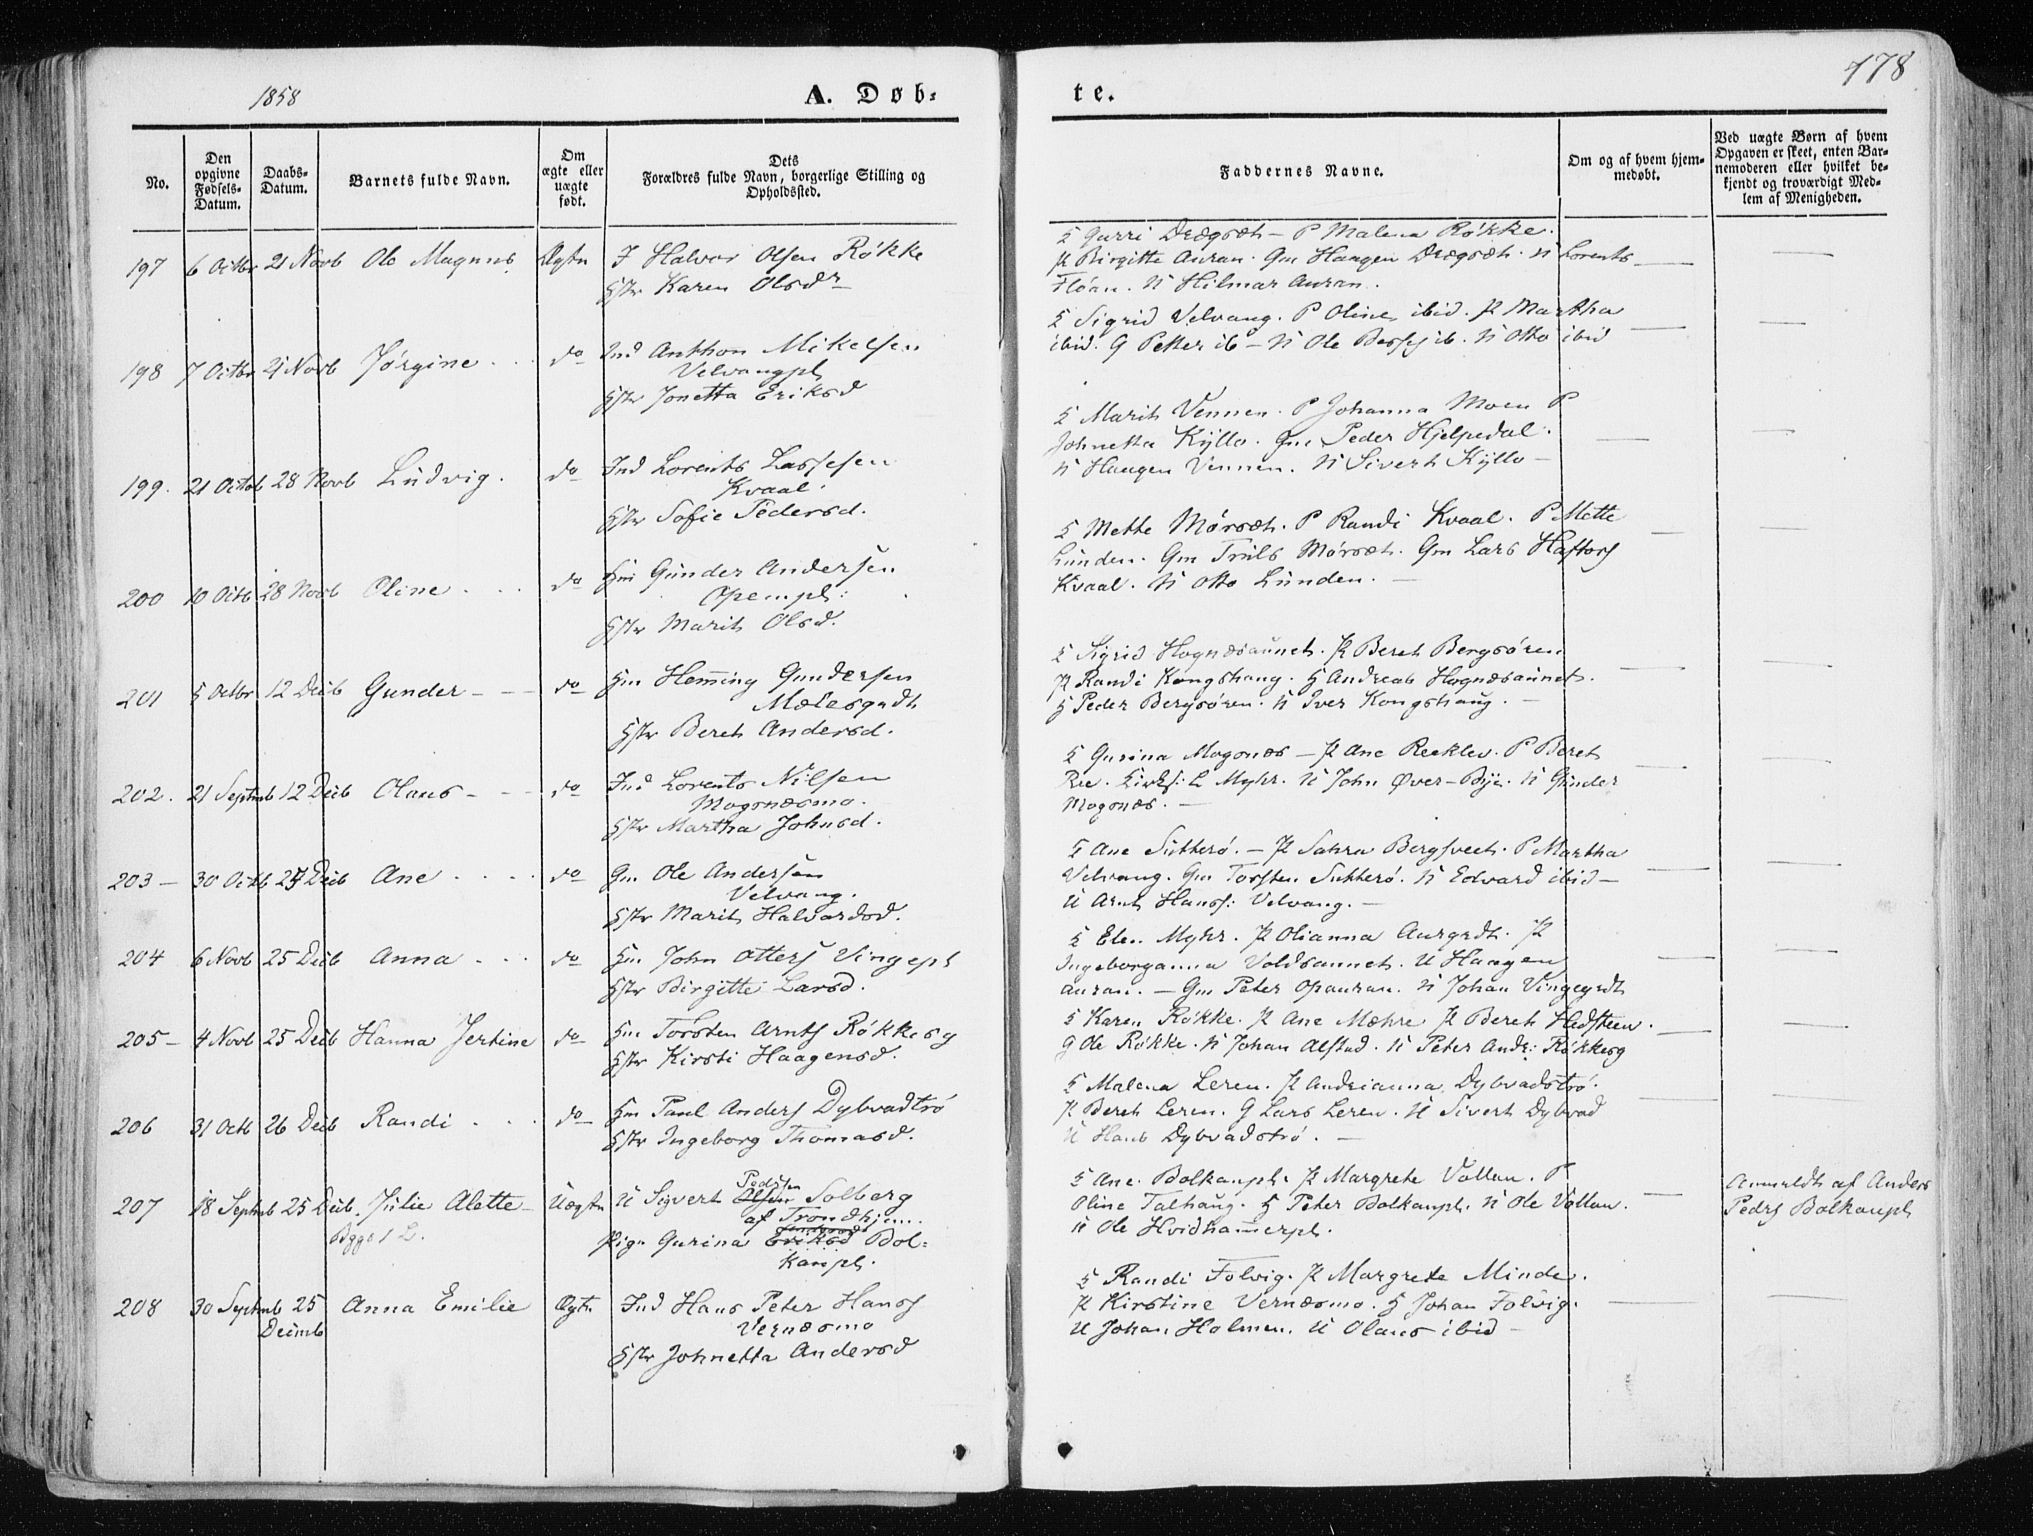 1858
A. Døb-
te.
178
No.
Den opgivne Fødsels-Datum.
Daabs-Datum.
Barnets fulde Navn.
Om ægte eller uægte født.
Dets Forældres fulde Navn, borgerlige Stilling og Opholdssted.
Faddernes Navne.
Om og af hvem hjem-medøbt.
Ved uægte Børn af hvem Opgaven er skeet, enten Bar-nemoderen eller hvilket be-kjendt og troværdigt Med-lem af Menigheden.
197 6 Octbr 21 Novb Ole Magnus Ægte I Halvor Olsen Røkke
Hstr Karen Olsdr
G Gurri Drægset - P Malena Røkke.
P Birgitte Auran. Gm Haagen Drægset. U Lorents
Fløan. U Hilmar Auran.
198 7 Octbr 21 Novb Jørgine do Ind Anthon Mikelsen
Velvangpl
Hstr Jonetta Eriksd
G Sigrid Velvang. P Oline ibid. P Martha
ibid. G Petter ib - U Ole ib. U Otto ibid
199. 21 Octob 28 Novb Ludvig. do Ind Lorents Lassesen
Kvaal
Hstr Sofie Pedersd.
G Marit Vennen. P Johanna Moen P
Johnetta Kyllo. Gm Peder Hjelpedal.
U Haagen Vennen. U Sivert Kyllo -
200 10 Octb 28 Novb Oline do Hm Gunder Andersen
Opempl:
Hstr Marit Olsd.
G Mette Mørset. P Randi Kvaal. P Mette
Lunden. Gm Truls Mørset. Gm Lars Haftors
Kvaal. U Otto Lunden. -
201 5 Octbr 12 Decb Gunder - - do Hm Hemming Gundersen
Mælesgrdt
Hstr Beret Andersd.
G Sigrid Hognæsaunet. P Beret Bergsøren
P Randi Kongshaug. G Andreas Hognæsaunet.
G Peder Bergsøren. U Iver Kongshaug. -
202. 21 Septmb 12 Decb Olaus - - do Ind Lorents Nilsen
Mogsnæsmo.
Hstr Martha Johnsd.
G Gurina Mogsnæs - P Ane Reeklev. P Beret
Ree. Kirks: L Myhr. U John Øver-Bye. U Gunder
Mogsnæs. -
203 - 30 Octb 25 Decb Ane do Gm Ole Andersen
Velvang.
Hstr Marit Halvorsd.
G Ane Sutterø. - P Sahra Bergsveet. P Martha
Velvang. Gm Torsten Sutterø. U Edvard ibid -
U Arnt Hanss: Velvang. -
204 6 Novb 25 Decb Anna do Hm John Otters Vingepl
Hstr Birgitte Larsd.
G Elen Myhr. P Olianna Aurgrdt. P
Ingeborganna Voldsaunet. U Haagen
Auran. - Gm Peter Opauran. U Johan Vingegrdt
205 - 4 Novb 25 Decb Hanna Jertine do Hm Torsten Arnts Røkkesg
Hstr Kirsti Haagensd.
G Karen Røkke. P Ane Mæhre P Beret Hedsteen.
G Ole Røkke. U Johan Alstad. U Peter Andr: Røkkesg
206 31 Octb 26 Decb Randi do Hm Paul Anders Dybvadtrø
Hstr Ingeborg Thomasd.
G Malena Leren. P Andrianna Dybvadstrø.
P Beret Leren. G Lars Leren. U Sivert Dybvad
U Hans Dybvadstrø. -
207 18 Septmb 25 Decb. Julie Alette - Uægte U Sigvert Olsen Solberg
Bygsl L.
af Trondhjem.
Pige Gurina Eriksd Bol-
kanpl.
G Ane Bolkanpl. P Margrete Vollan. P
Oline Falhaug. G Peter Bolkanpl. U Ole Vollan.
U Ole Hvidhammerpl.
Anmeldt af Anders
Peders Bolkanpl
208 30 Septmb 25 Decmb Anna Emilie Ægte Ind Hans Peter Hanss
Vernæsmo
Hstr Johnetta Andersd
G Randi Folvig. P Margrete Minde.
P Kirstine Vernæsmo. G Johan Folvig.
U Johan Holmen. U Olaus ibid -